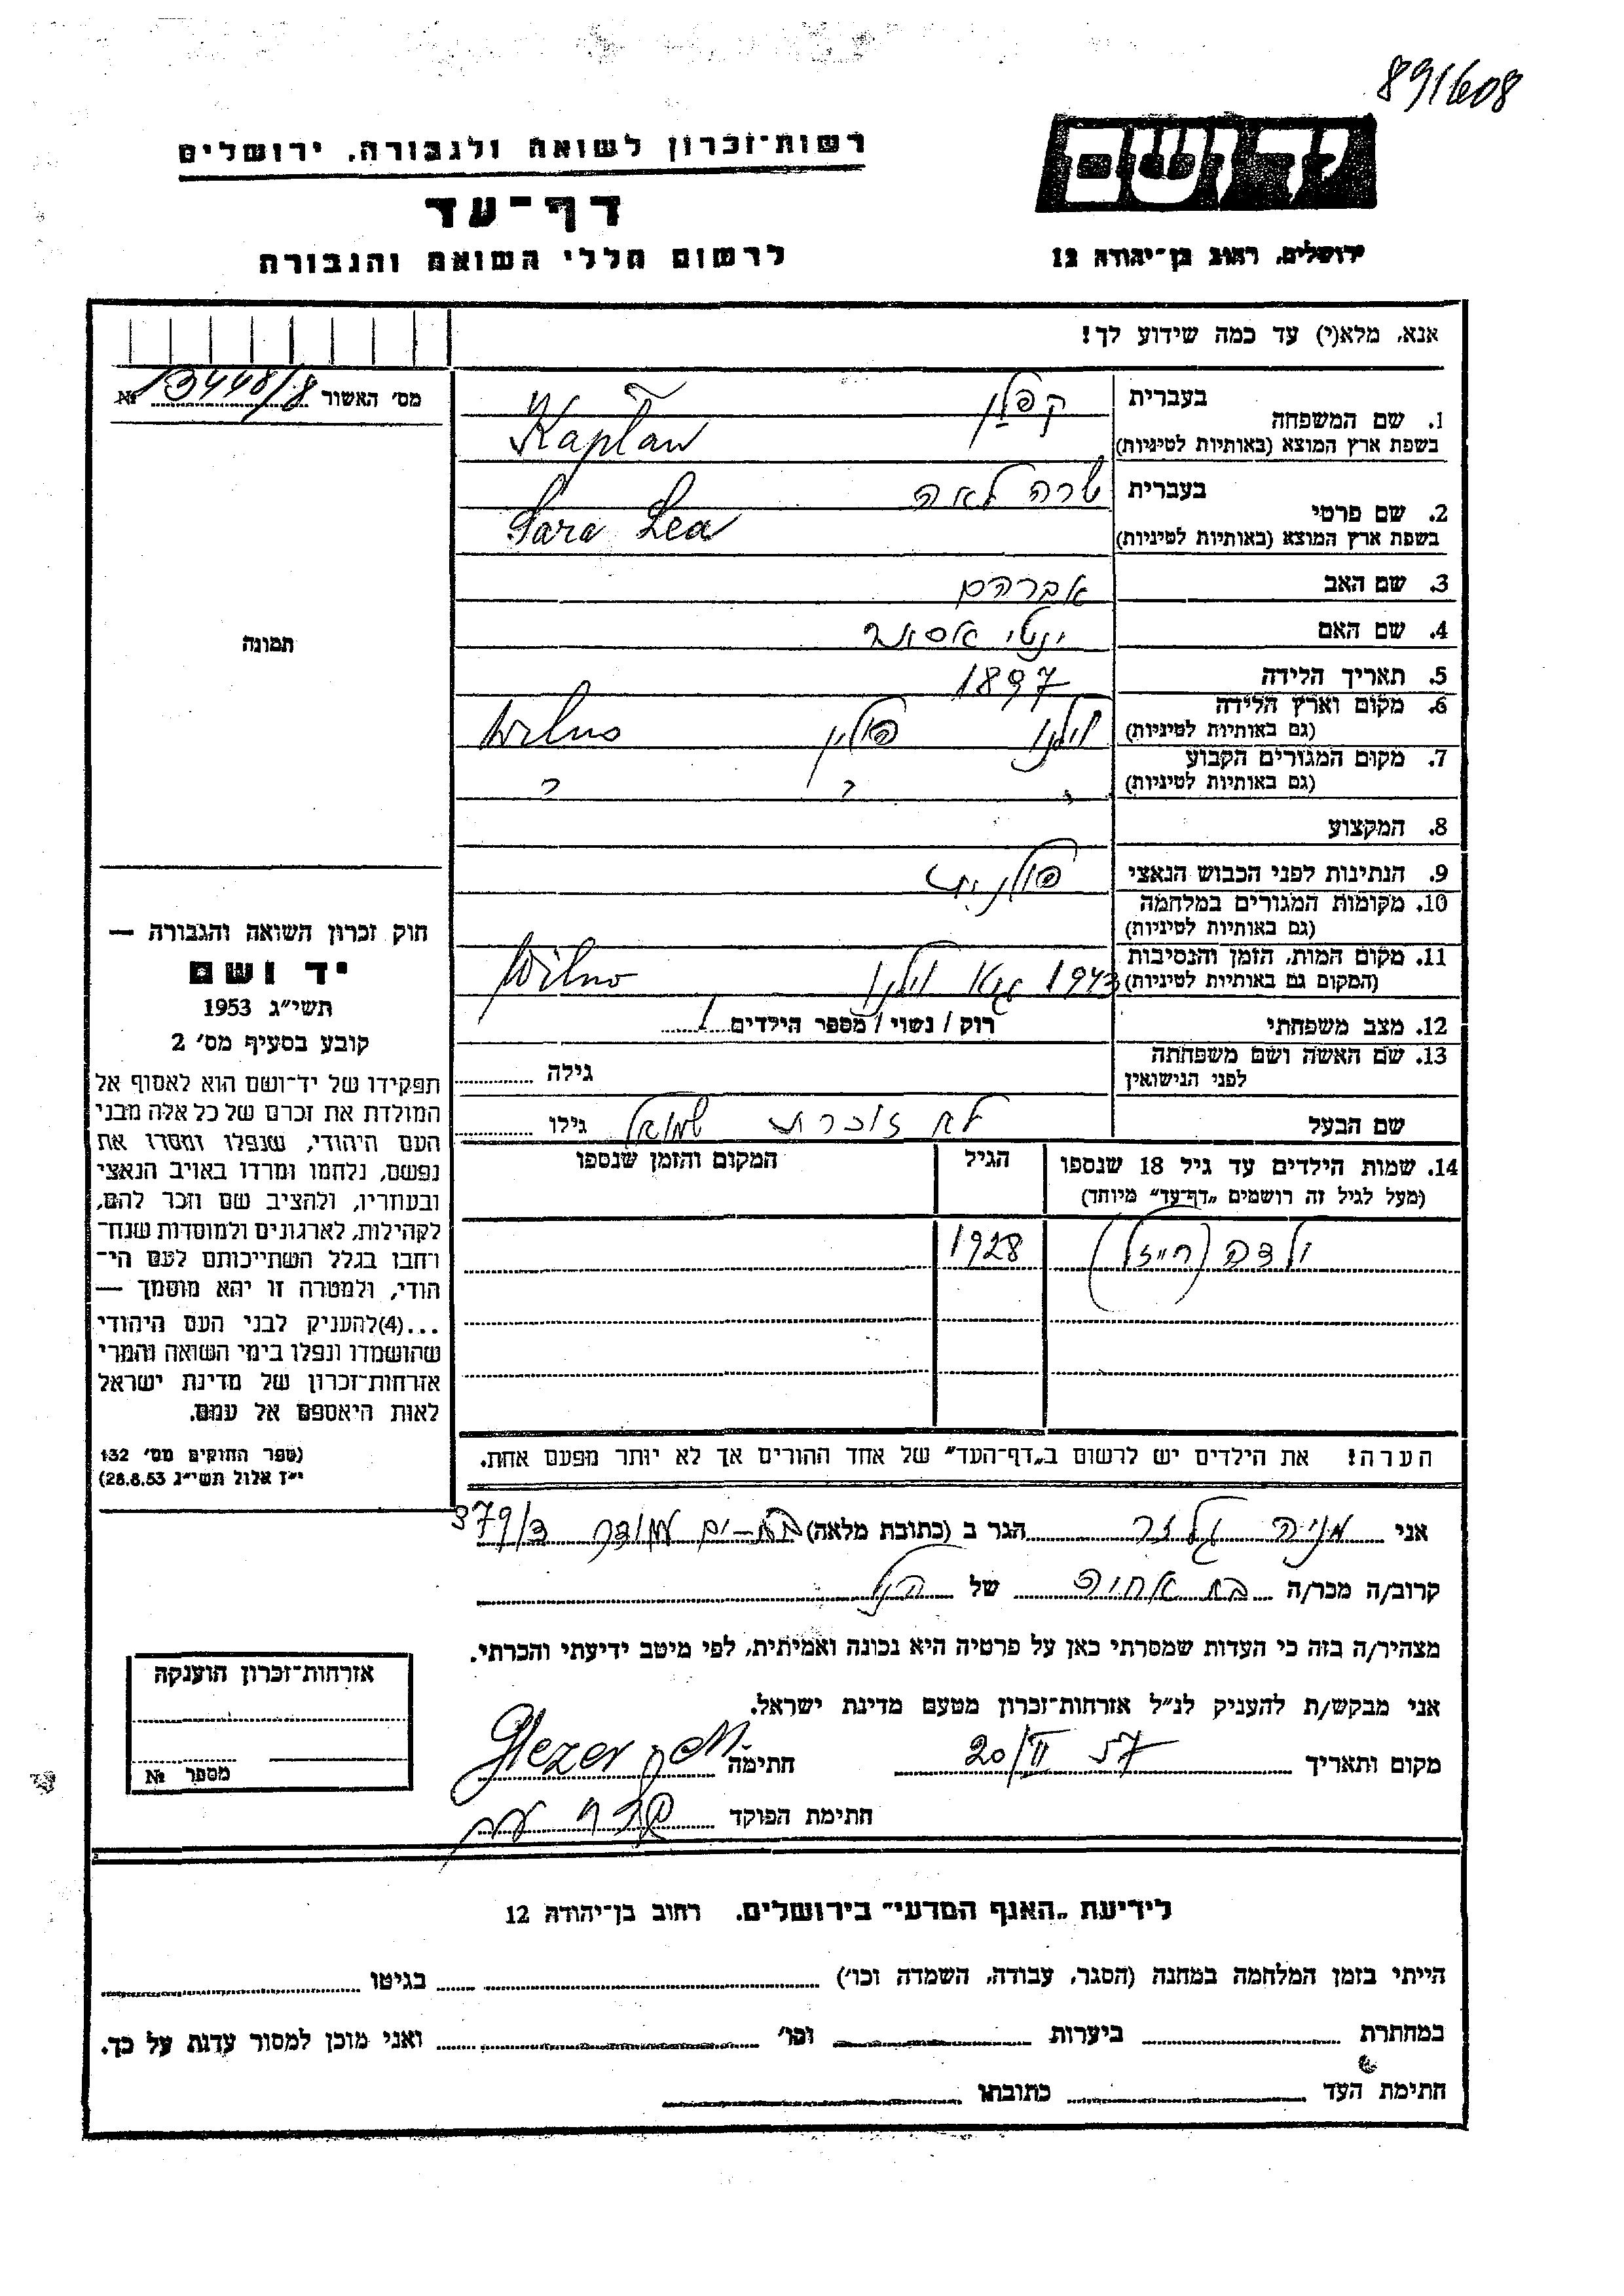 891608
יד ושם
רשות־זכרון לשואה ולגבורה, ירושלים
דף־עד
לרשום חללי השואה והגבורה
ירושלים, רחוב בן־יהודה 12
אנא, מלא(י) עד כמה שידוע לך!
מס׳ האשור 13448/8 №
1. שם המשפחה בעברית קפלן
בשפת ארץ המוצא (באותיות לטיניות) Kaplan
2. שם פרטי בעברית שרה לאה
בשפת ארץ המוצא (באותיות לטיניות) Sara Lea
3. שם האב אברהם
4. שם האם
תמונה
5. תאריך הלידה 1897
6. מקום וארץ הלידה (גם באותיות לטיניות) וילנו פולין Wilno
7. מקום המגורים הקבוע (גם באותיות לטיניות) ״ ״ ״
8. המקצוע
9. הנתינות לפני הכבוש הנאצי פולנית
10. מקומות המגורים במלחמה (גם באותיות לטיניות)
11. מקום המות, הזמן והנסיבות (המקום גם באותיות לטיניות) 1943 וילנו Wilno
12. מצב משפחתי רוק / נשוי / מספר הילדים 1
13. שם האשה ושם משפחתה לפני הנישואין גילה
שם הבעל לא זוכרת שמואל גילו
14. שמות הילדים עד גיל 18 שנספו
(מעל לגיל זה רושמים „דף־עד״ מיוחד)
הגיל
המקום והזמן שנספו
ילדה 1928
הערה! את הילדים יש לרשום ב„דף־העד״ של אחד ההורים אך לא יותר מפעם אחת.
חוק זכרון השואה והגבורה —
יד ושם
תשי״ג 1953
קובע בסעיף מס׳ 2
תפקידו של יד־ושם הוא לאסוף אל
המולדת את זכרם של כל אלה מבני
העם היהודי, שנפלו ומסרו את
נפשם, נלחמו ומרדו באויב הנאצי
ובעוזריו, ולהציב שם וזכר להם,
לקהילות, לארגונים ולמוסדות שנח־
רחבו בגלל השתייכותם לעם הי־
הודי, ולמטרה זו יהא מוסמך —
...(4)להעניק לבני העם היהודי
שהושמדו ונפלו בימי השואה והמרי
אזרחות־זכרון של מדינת ישראל
לאות היאספם אל עמם.
(ספר החוקים מס׳ 132
י״ז אלול תשי״ג 28.8.53)
אני מניה גלזר הגר ב (כתובת מלאה) בת-ים עמידר 379/ד
קרוב/ה מכר/ה בת אחות של הנ״ל
מצהיר/ה בזה כי העדות שמסרתי כאן על פרטיה היא נכונה ואמיתית, לפי מיטב ידיעתי והכרתי.
אני מבקש/ת להעניק לנ״ל אזרחות־זכרון מטעם מדינת ישראל.
מקום ותאריך 20/II 57 חתימה Glezer M.
חתימת הפוקד
אזרחות־זכרון הוענקה
מספר №
לידיעת „האגף המדעי״ בירושלים. רחוב בן־יהודה 12
הייתי בזמן המלחמה במחנה (הסגר, עבודה, השמדה וכו׳) בגיטו
במחתרת ביערות וכו׳ ואני מוכן למסור עדות על כך.
חתימת העד כתובתו